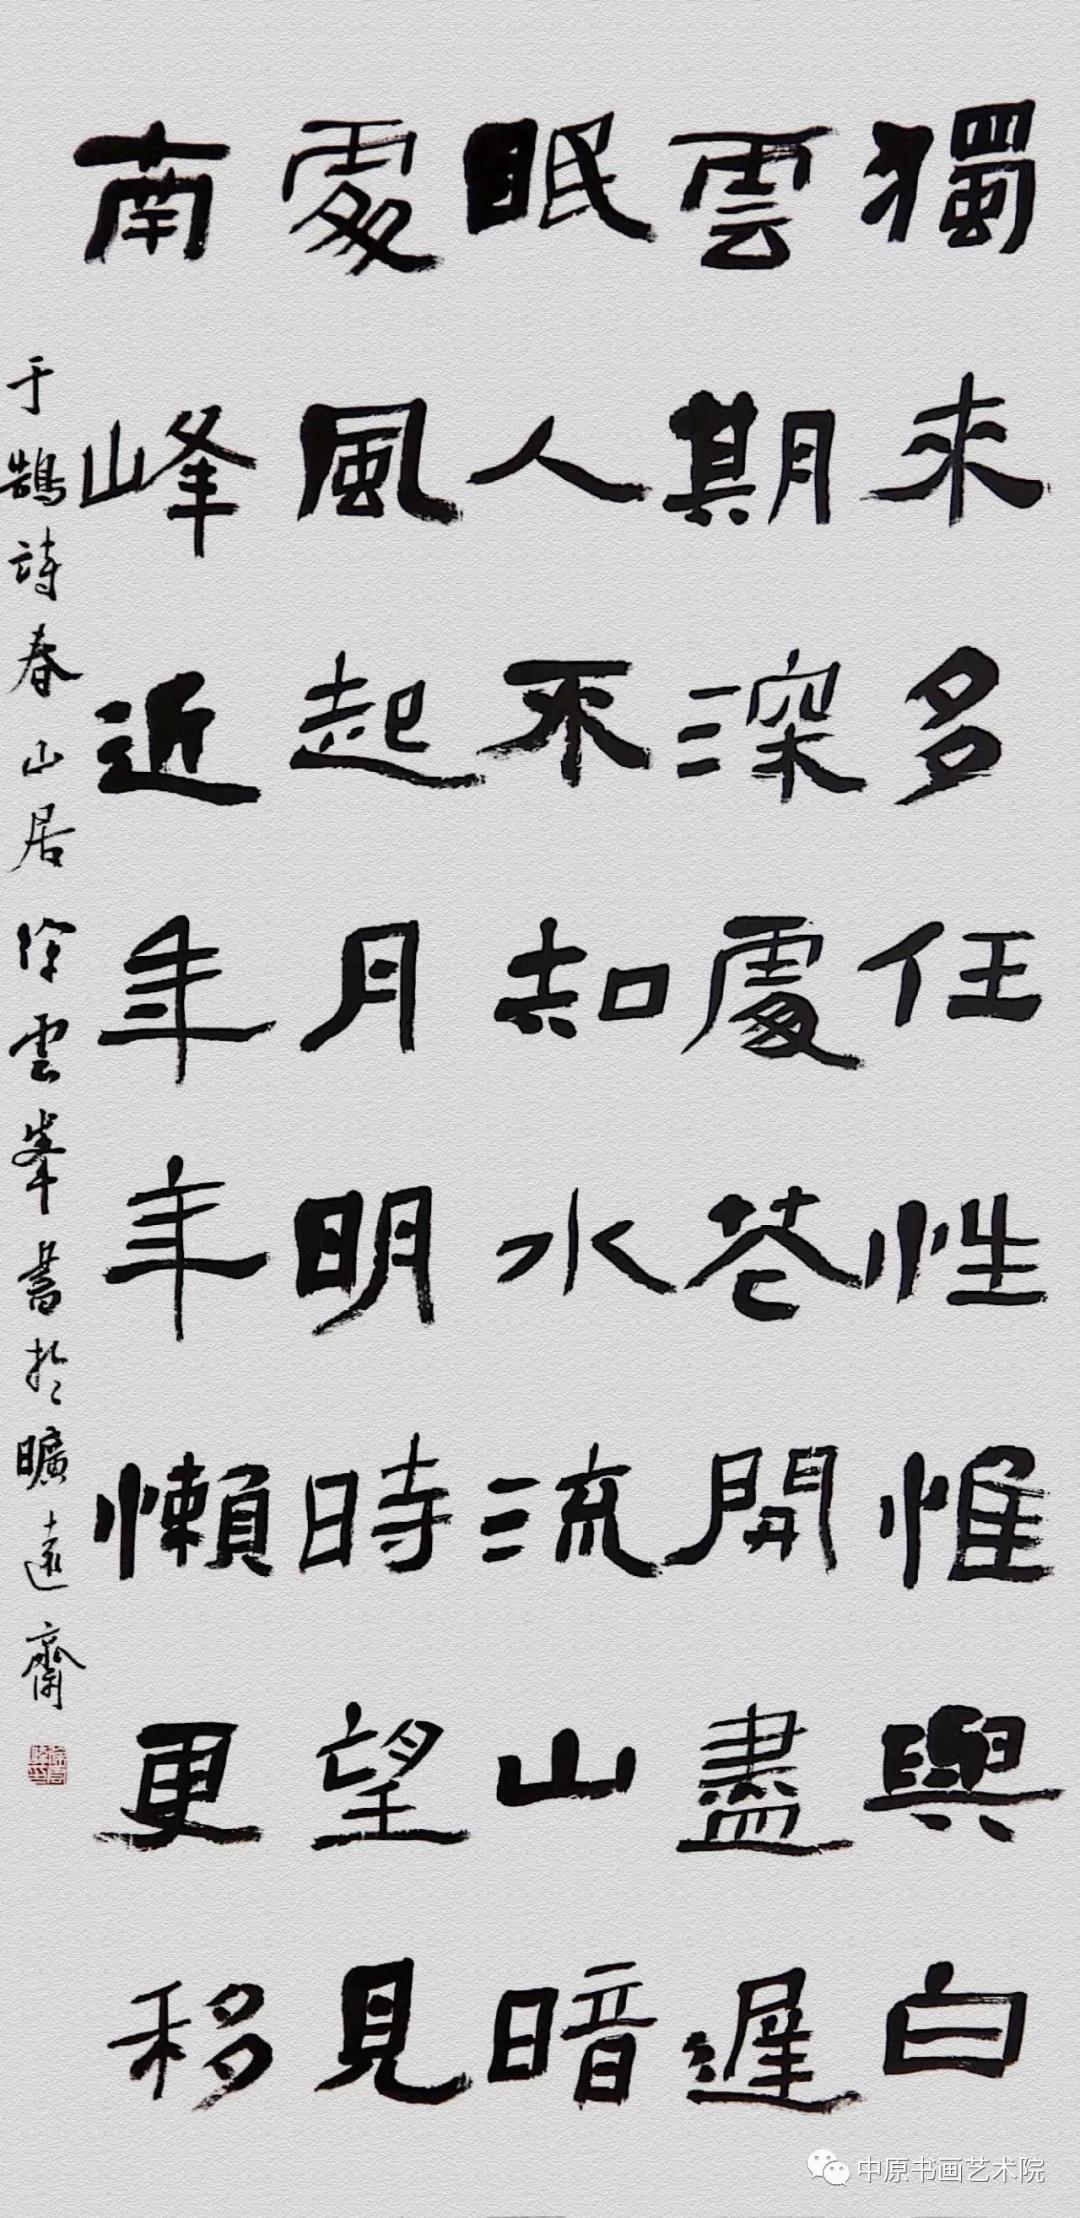 獨來多任性惟與白
雲期深處花開盡遲
眠人不知水流山暗
處風起月明時望見
南峰近年年懶更移
于鵠詩春山居徐雲峯書於曠遠齋
中原书画艺术院